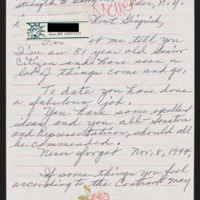 Newt Gingrich,
let me tell you
I'm an 81 year old Senior
Citizen and have seen a
lot of things come and go.
To date you have done
a fabulous job.
You have some excellent
ideas and you all - Senators
and Representatives, should all
be commended.
Never forget Nov. 8, 1994.
If some things you feel
according to the Contract may